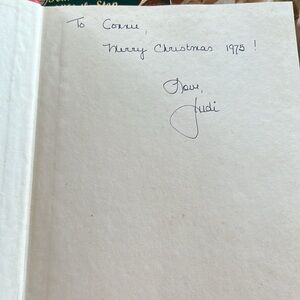 To Connie,
Merry Christmas 1975 !
Love,
Judi